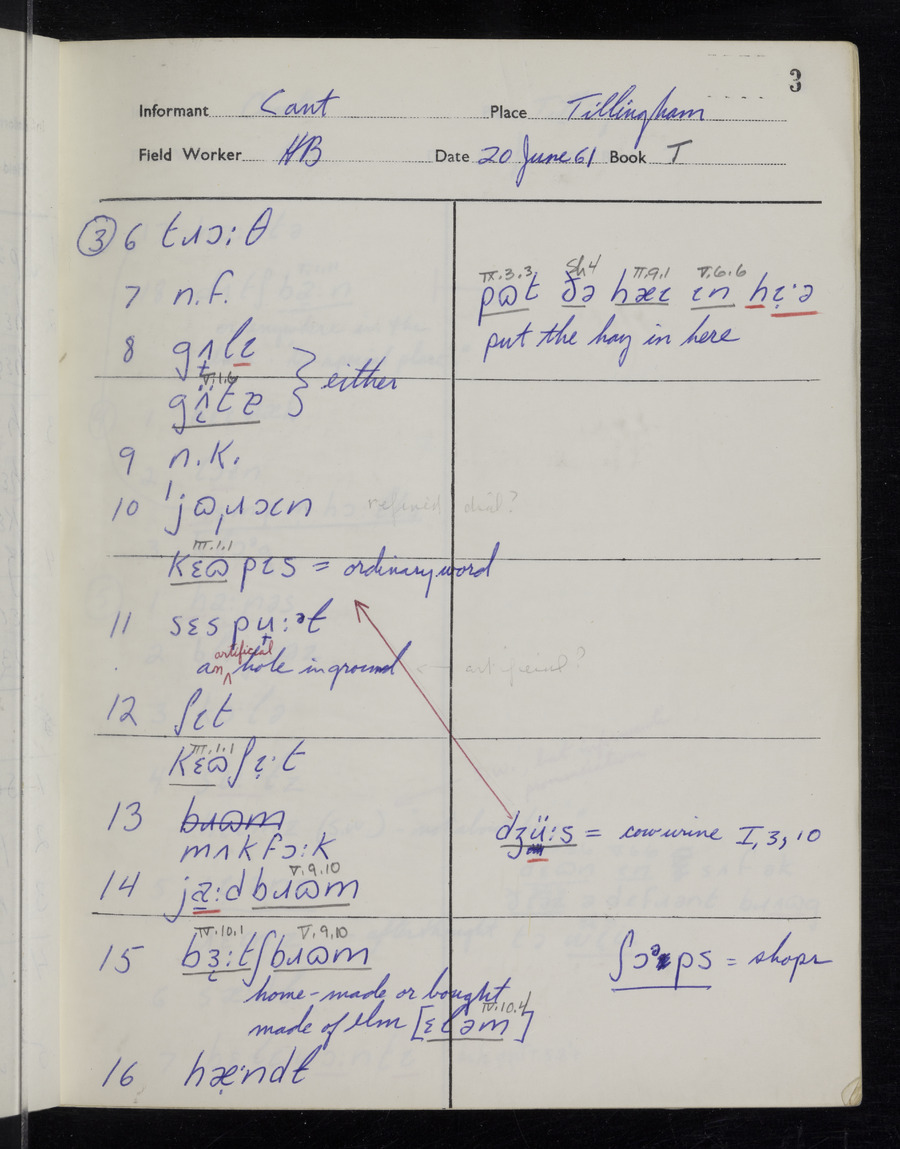 3
Informant Cant Place Tillingham
Field Worker HB Date 20 June 61 Book T
③ 6 tɹɔ:θ
7 n.f.
8 gʌlɪ
V.1.6
gʌtə } either
9 n.K.
10 ˈjɷˌɹɔɪn refined dial?
III.1.1
kɛɷ pɪs = ordinary word
11 sɛs pʉ:ət
an artificial hole in ground ← artificial?
12 ʃɪt
III.1.1
kɛɷ ʃɪ·t
13 bɹɷm
mʌkfɔ:k
V.9.10
14 jɑ:d bɹɷm
IV.10.1 V.9.10
15 bɜ:tʃbɹɷm
home-made or bought
IV.10.4
made of elm [ɛləm]
16 hæ·ndɫ
IX.3.3 Sh4 II.9.1 V.6.6
pɷt ðə hæɪ ɪn hɪ·ə
put the hay in here
dʒü:s = cow urine I, 3, 10
ʃɔəps = shops